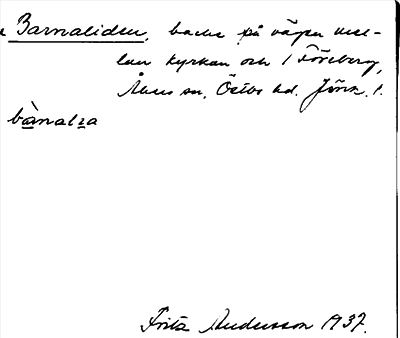 Barnaliden, backe på vägen mel-
lan kyrkan och 1 Föreberg,
Åkers sn, Östbo hd. Jönk. l.
bàrnalıa
Fritz Andersson 1937.